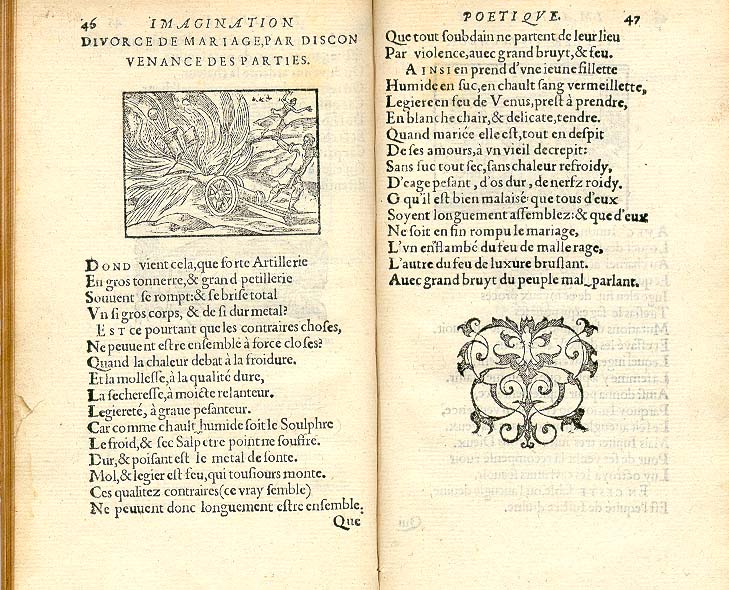 46 IMAGINATION
DIVORCE DE MARIAGE, PAR DISCON
VENANCE DES PARTIES.
DOND vient cela, que forte Artillerie
En gros tonnerre, & grand petillerie
Souuent se rompt: & se brise total
Vn si gros corps, & de si dur metal?
EST ce pourtant que les contraires choses,
Ne peuuent estre ensemble à force closes?
Quand la chaleur debat à la froidure.
Et la mollesse, à la qualité dure,
La secheresse, à moicte relanteur.
Legiereté, à graue pesanteur.
Car comme chault, humide soit le Soulphre
Le froid, & sec Salpetre point ne souffre.
Dur, & poisant est le metal de fonte.
Mol, & legier est feu, qui tousiours monte.
Ces qualitez contraires (ce vray semble)
Ne peuuent donc longuement estre ensemble.
Que
POETIQVE. 47
Que tout soubdain ne partent de leur lieu
Par violence, auec grand bruyt, & feu.
AINSI en prend d'vne ieune fillette
Humide en suc, en chault sang vermeillette,
Legiere en feu de Venus, prest à prendre,
En blanche chair, & delicate, tendre.
Quand mariée elle est, tout en despit
De ses amours, à vn vieil decrepit:
Sans suc tout sec, sans chaleur refroidy,
D'eage pesant, d'os dur, de nerfz roidy.
O qu'il est bien malaisé que tous d'eux
Soyent longuement assemblez: & que d'eux
Ne soit en fin rompu le mariage,
L'vn enflambé du feu de malle rage,
L'autre du feu de luxure bruslant.
Auec grand bruyt du peuple mal parlant.